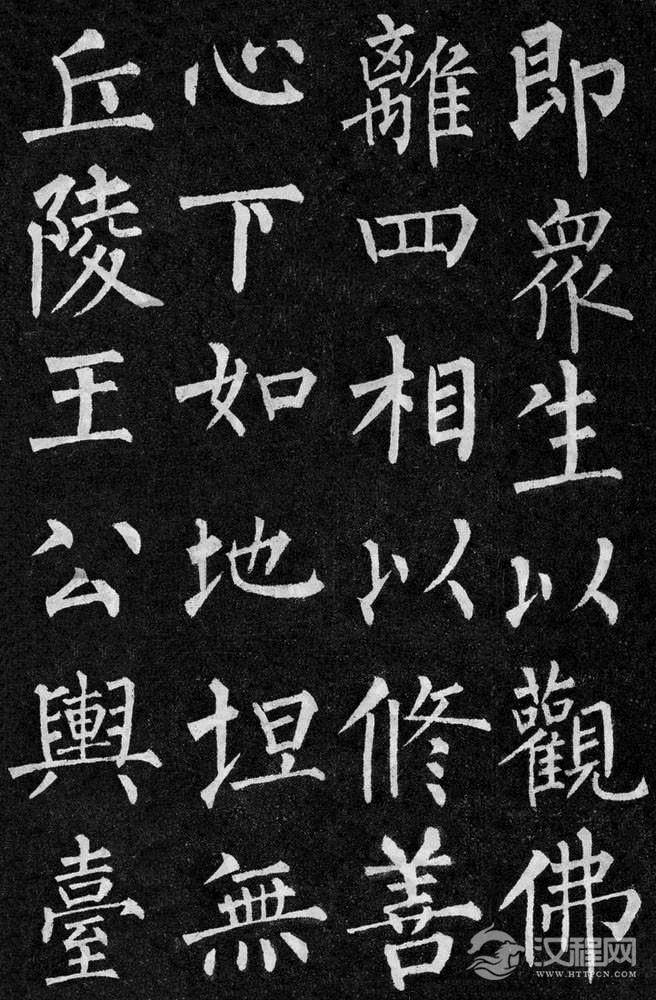 即衆生以觀佛
離四相以修善
心下如地坦無
丘陵王公輿臺
汉程网
WWW.HTTPCN.COM